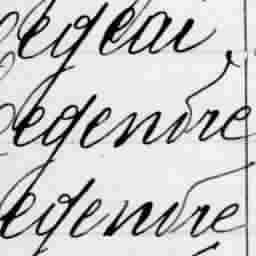 Legeai
Legendre
Legendre